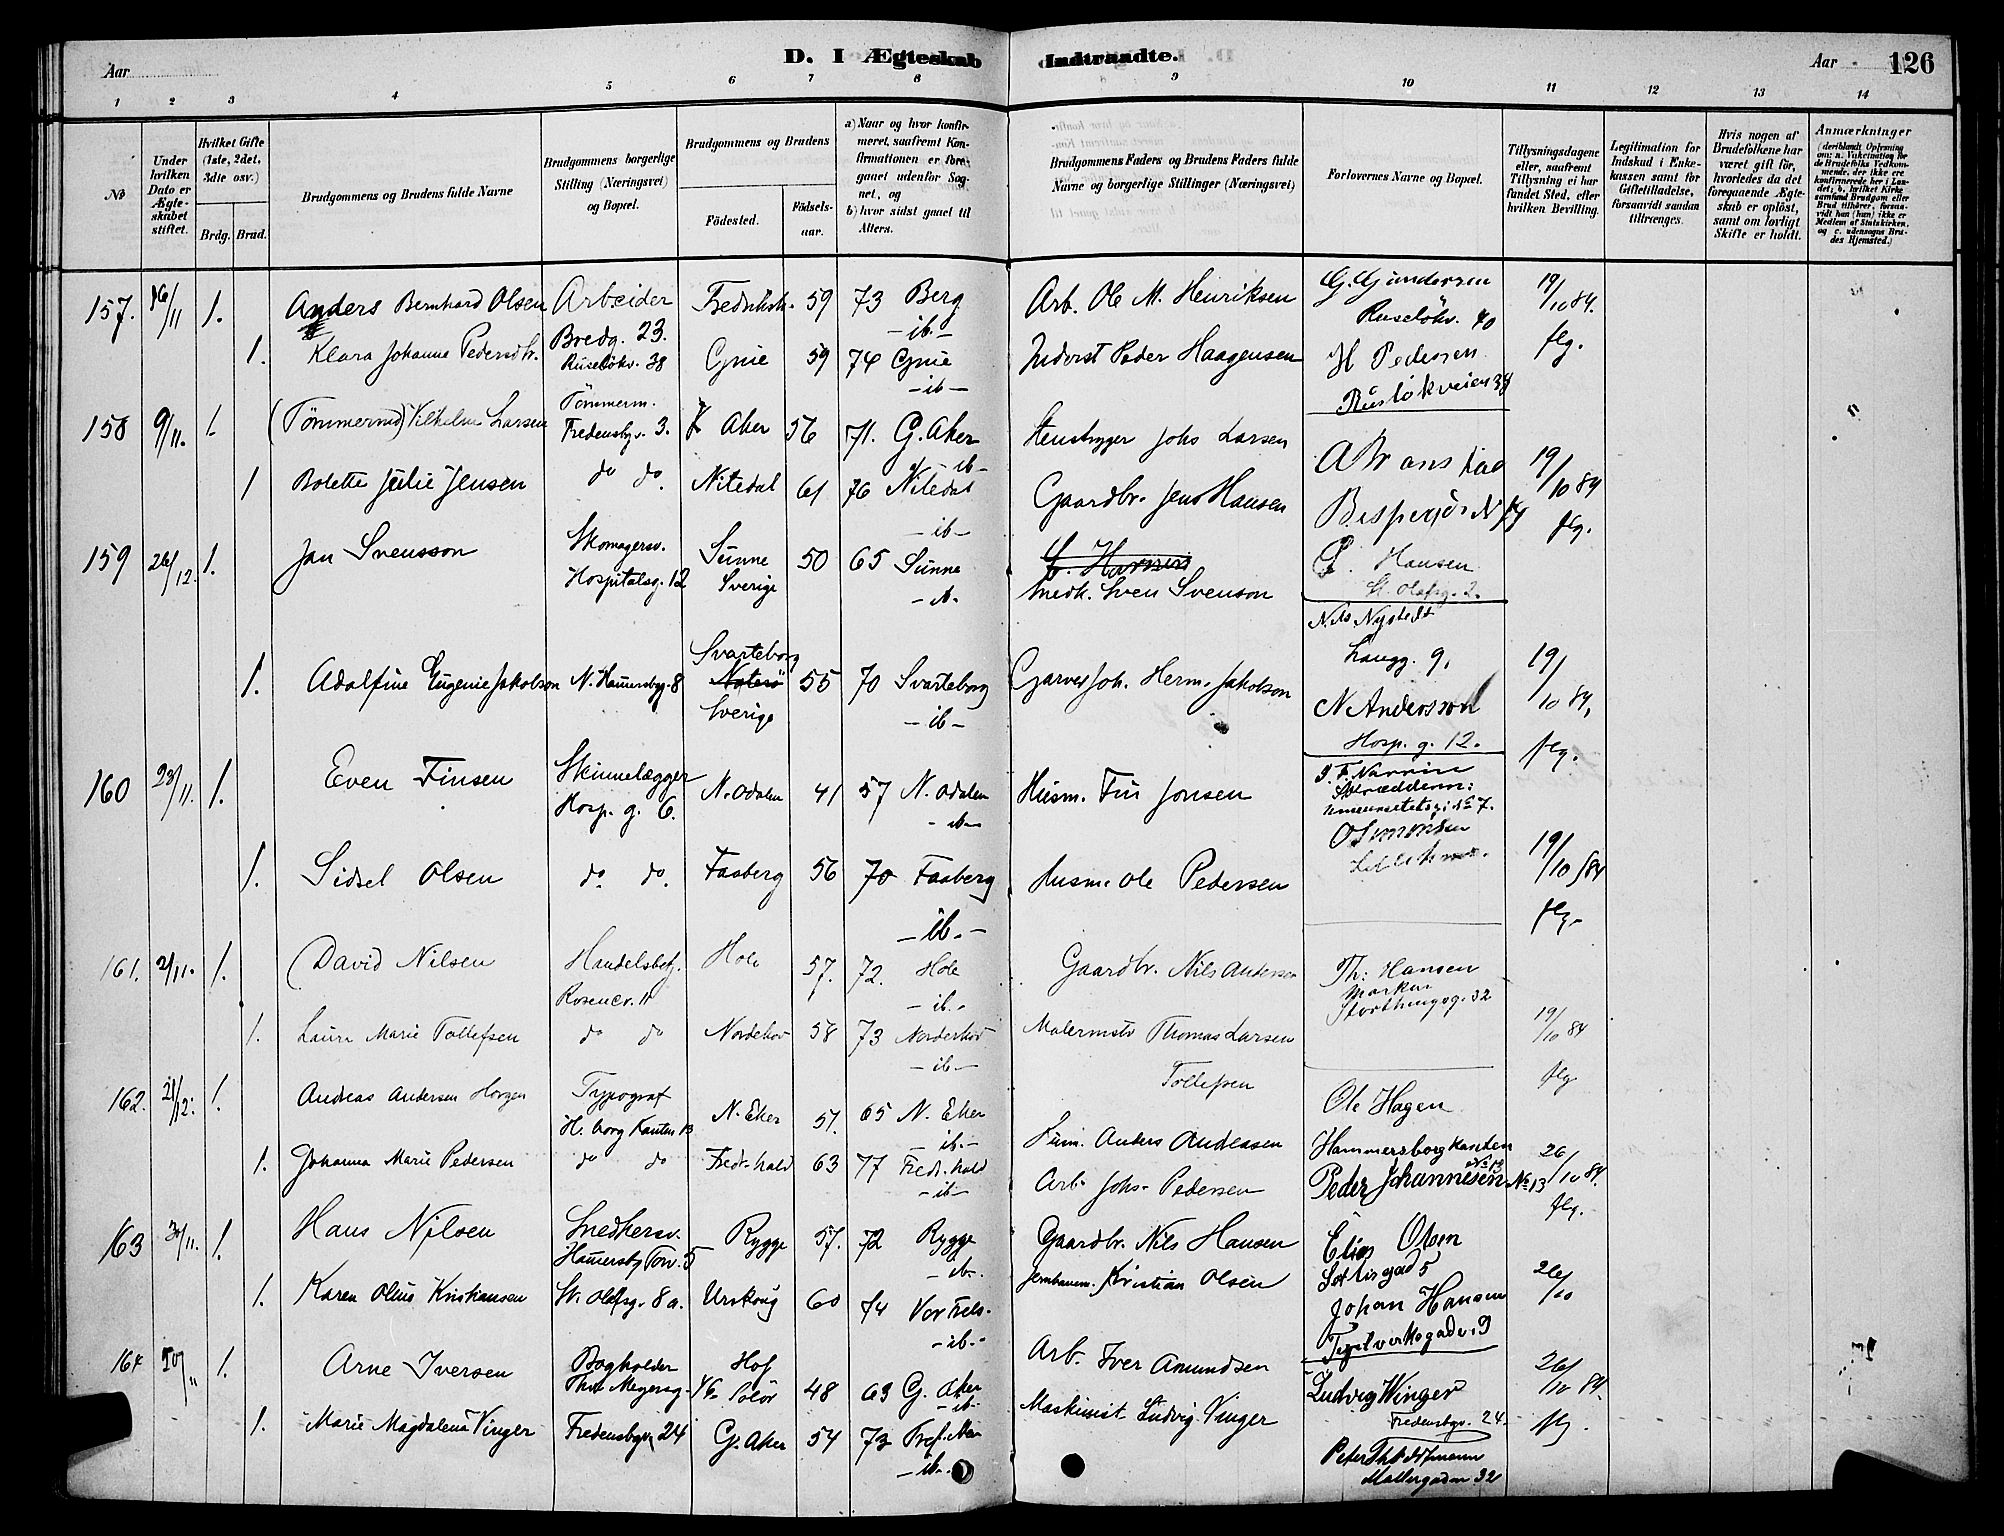 D. I Ægteskab Indtraadte.
Aar
Aar
126
1 2 3 4 5 6 7 8 9 10 11 12 13 14
No
Under hvilken Dato er Ægteskabet stiftet.
Hvilket Gifte (1ste, 2det, 3die osv.)
Brdg. Brud.
Brudgommens og Brudens fulde Navne
Brudgommens borgerlige Stilling (Næringsvei) og Bopæl.
Brudgommens og Brudens
Fødested.
Fødselsaar.
a) Naar og hvor konfirmeret, saafremt Konfirmationen er foregaaet udenfor Sognet, og
b) hvor sidst gaaet til Alters.
Brudgommens Faders og Brudens Faders fulde Navne og borgerlige Stillinger (Næringsvei)
Forlovernes Navne og Bopæl.
Tillysningsdagene eller, saafremt Tillysning ei har fundet Sted, efter hvilken Bevilling.
Legitimation for Indskud i Enkekassen samt for Giftetilladelse, forsaavidt saadan tiltrænges.
Hvis nogen af Brudefolkene har været gift før, hvorledes da det foregaaende Ægteskab er opløst, samt om lovligt Skifte er holdt.
Anmærkninger
157. 16/11 1. Anders Bernhard Olsen Arbeider Bredg. 23. Fredrikst. 59 73 Berg -ib- Arb. Ole M. Henriksen G. Gundersen Ruseløkv. 40 19/10 84.
1. Klara Johanne Pedersdtr. Ruseløkv. 38 59 74 -ib- Inderst Peder Haagensen H Pedersen Rusløkveien 38 flg.
158 9/11. 1. (Tømmermd) Vilhelm Larsen Tømmerm. Fredensbgv. 3. Aker 56 71. G. Aker -ib- Johs Larsen
1 Bolette Julie Jensen do do. Nitedal 61 76 Nitedal -ib- Gaardbr. Jens Hansen 19/10 84 flg.
159 26/12. 1. Jan Svensson Skomagersv. Hospitalsg. 12 Sunne Sverige 50 65 Sunne -ib- Smedk. Sven Svenson Hansen St. Olafsg. 2.
1. Adolfine Eugenie Jakobson N. Hamersbg. 8 Svarteborg Sverige 55 70 Svarteborg -ib- Garver Joh. Herm. Jakobson Nils Nystedt Langg. 9, N Andersson Hosp. g. 12. 19/10 84, flg.
160 23/11. 1. Even Finsen Skinnelægger Hosp. g. 6. N. Odalen 41 57 N. Odalen -ib- Husm. Fin Jonsen
1. Sidsel Olsen do. do. Faaberg 56 70 Faaberg -ib.- Husm. Ole Pedersen O Simonsen 19/10 84 flg.
161. 2/11. 1. David Nilsen Handelsbetj. Hole 57. 72. Hole -ib.- Gaardbr. Nils Andersen Th: Hansen Storthingsg. 32
1. Laura Marie Tollefsen do do Norderhov 58 73 Norderhov -ib- Malermstr Thomas Larsen Tollefsen 19/10 84 flg.
162. 21/12. 1. Andreas Andersen Horgen Typograf H. borg Kanten 13 N. Eker 51. 65 N. Eker -ib.- Anders Andreasen Ole Hagen Hammersborgkanten No 13 26/10 84.
1. Johanna Marie Pedersen do do Fredr.hald 63 77 Fredr.hald -ib- Arb. Johs. Pedersen Peder Johannesen No 13 flg.
163 30/11. 1. Hans Nilsen Snedkersv. Hamersbg Torv. 5 Rygge 57. 72 Rygge -ib.- Gaardbr. Nils Hansen Elias Olsen
1. Karen Oline Kristiansen St. Olafsg. 8a. Urskoug 60 74 Vor Frels. -ib.- Kristian Olsen Johan Hansen 26/10
164 1. Arne Iversen Bogholder Thv. Meyersg. Hof Solør 48 63 G. Aker -ib- Arb. Iver Amundsen Ludvig Winger Fredensbgv. 24. 26/10 84.
1. Marie Magdalena Vinger Fredensbgv. 24 G. Aker 54 73 -ib- Maskinist Ludvig Vinger Møllergaden 32 flg.